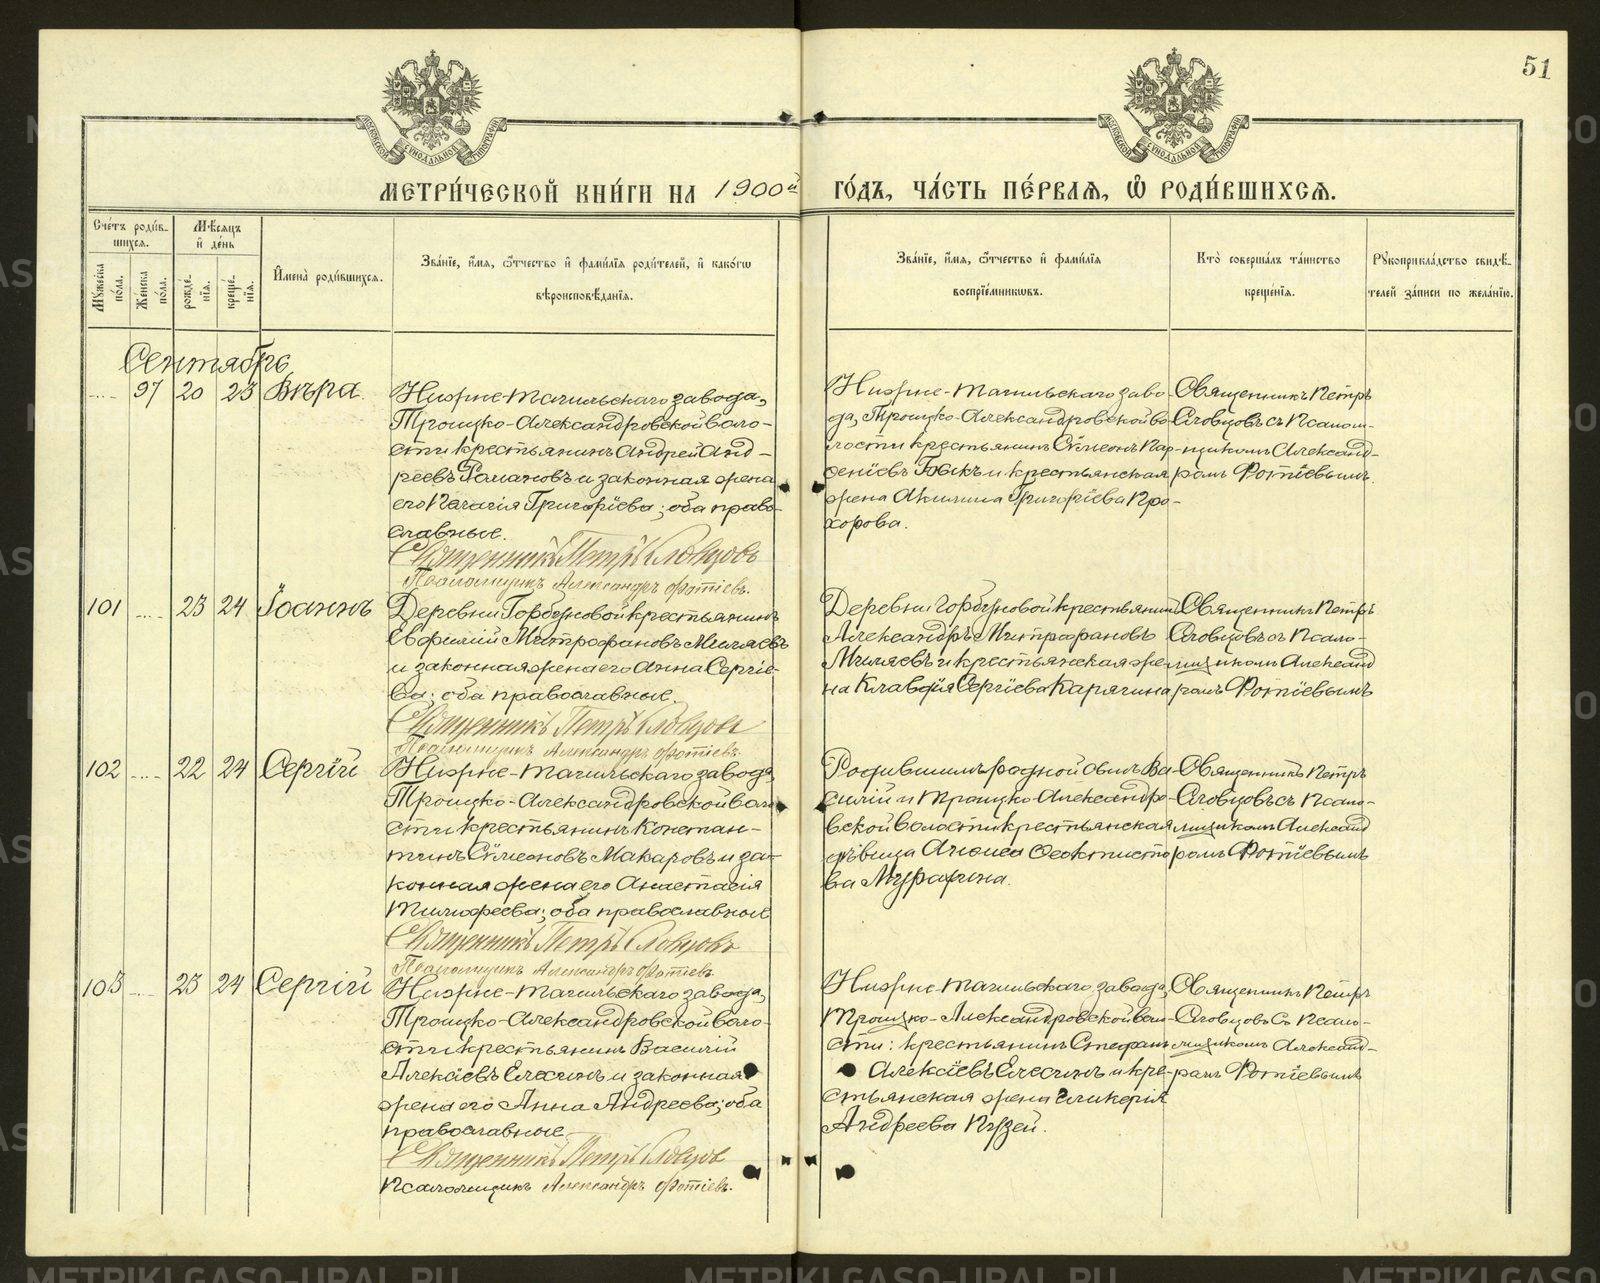 51
МОСКОВСКОЙ СѴНОДАЛЬНОЙ ТИПОГРАФІИ
МОСКОВСКОЙ СѴНОДАЛЬНОЙ ТИПОГРАФІИ
МЕТРИ́ЧЕСКОЙ КНИ́ГИ НА 1900й ГО́ДЪ, ЧА́СТЬ ПЕ́РВАѦ, Ѡ҆ РОДИ́ВШИХСѦ.
Сче́тъ роди́в-
шихсѧ.
Мꙋ́жеска по́ла.
Же́нска по́ла.
Мѣ́сѧцъ
и҆ де́нь
рожде́-
нїѧ.
креще́-
нїѧ.
И҆мена̀ роди́вшихсѧ.
Зва́нїе, и҆́мѧ, ѻ҆́тчество и҆ фами́лїѧ роди́телей, и҆ како́гѡ
вѣроисповѣ́данїѧ.
Зва́нїе, и҆́мѧ, ѻ҆́тчество и҆ фами́лїѧ
воспрїе́мникѡвъ.
Кто̀ соверша́лъ та́инство
креще́нїѧ.
Рꙋкоприкла́дство свидѣ́-
телей за́писи по жела́нїю.
Сентябрь
.... 97 20 23 Вѣра.
Нижне-Тагильскаго завода,
Троицко-Александровской воло-
сти крестьянинъ Андрей Анд-
реевъ Романовъ и законная жена
его Пелагія Григоріева; оба право-
славные.
Священникъ Петръ Словцовъ
Псаломщикъ Александръ Фотіевъ.
Нижне-Тагильскаго заво-
да, Троицко-Александровской во-
лости крестьянинъ Сѵмеонъ Пар-
феніевъ и крестьянская
жена Акилина Григоріева Про-
хорова.
Священникъ Петръ
Словцовъ съ Псалом-
щикомъ Александ-
ромъ Фотіевымъ.
101 .... 23 24 Іоаннъ
Деревни Горбуновой крестьянинъ
Евфимій Митрофановъ Миляевъ
и законная жена его Анна Сергіе-
ва; оба православные.
Священникъ Петръ Словцовъ
Псаломщикъ Александръ Фотіевъ.
Деревни Горбуновой крестьянинъ
Александръ Митрофановъ
Миляевъ и крестьянская же-
на Клавдія Сергіева Карягина
Священникъ Петръ
Словцовъ съ Псало-
мщикомъ Александ
ромъ Фотіевымъ
102 .... 22 24 Сергій
Нижне-Тагильскаго завода,
Троицко-Александровской воло
сти крестьянинъ Констан-
тинъ Сѵмеоновъ Макаровъ и за-
конная жена его Анастасія
Тимофеева; оба православные
Священникъ Петръ Словцовъ
Псаломщикъ Александръ Фотіевъ
Родившимъ родной сынъ Ва-
силій и Троицко-Александро-
вской волости крестьянская
дѣвица Ѳеоктисто
ва
Священникъ Петръ
Словцовъ съ Псало-
мщикомъ Александ
ромъ Фотіевымъ
103 .... 23 24 Сергій
Нижне-Тагильскаго завода,
Троицко-Александровской воло-
сти крестьянинъ Василій
Алексіевъ Елесинъ и законная
жена его Анна Андреева; оба
православные.
Священникъ Петръ Словцов
Псаломщикъ Александръ Фотіевъ.
Нижне-Тагильскаго завода,
Троицко-Александровской воло-
сти: крестьянинъ Стефанъ
Алексіевъ Елесинъ и кре-
стьянская жена Гликерія
Андреева Пузей.
Священникъ Петръ
Словцовъ съ Псало-
мщикомъ Александ-
ромъ Фотіевымъ
METRIKI.GASO-URAL.RU